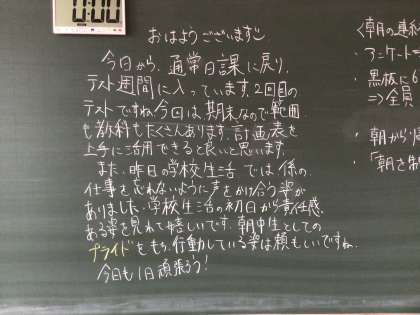 0:00
おはようございます
今日から、通常日課に戻り、
テスト週間に入っています。2回目の
テストですね。今回は、期末なので範囲
も教科もたくさんあります。計画表を
上手に活用できると良いと思います。
また、昨日の学校生活では係の
仕事を忘れないように声をかけ合う姿が
ありました。学校生活の初日から責任感
ある姿を見れて嬉しいです。朝中生としての
プライドをもち、行動している姿は頼もしいですね。
今日も1日頑張ろう!
<朝の連絡
・アンケート
・黒板に
⇒全員
・朝から
・「朝を制